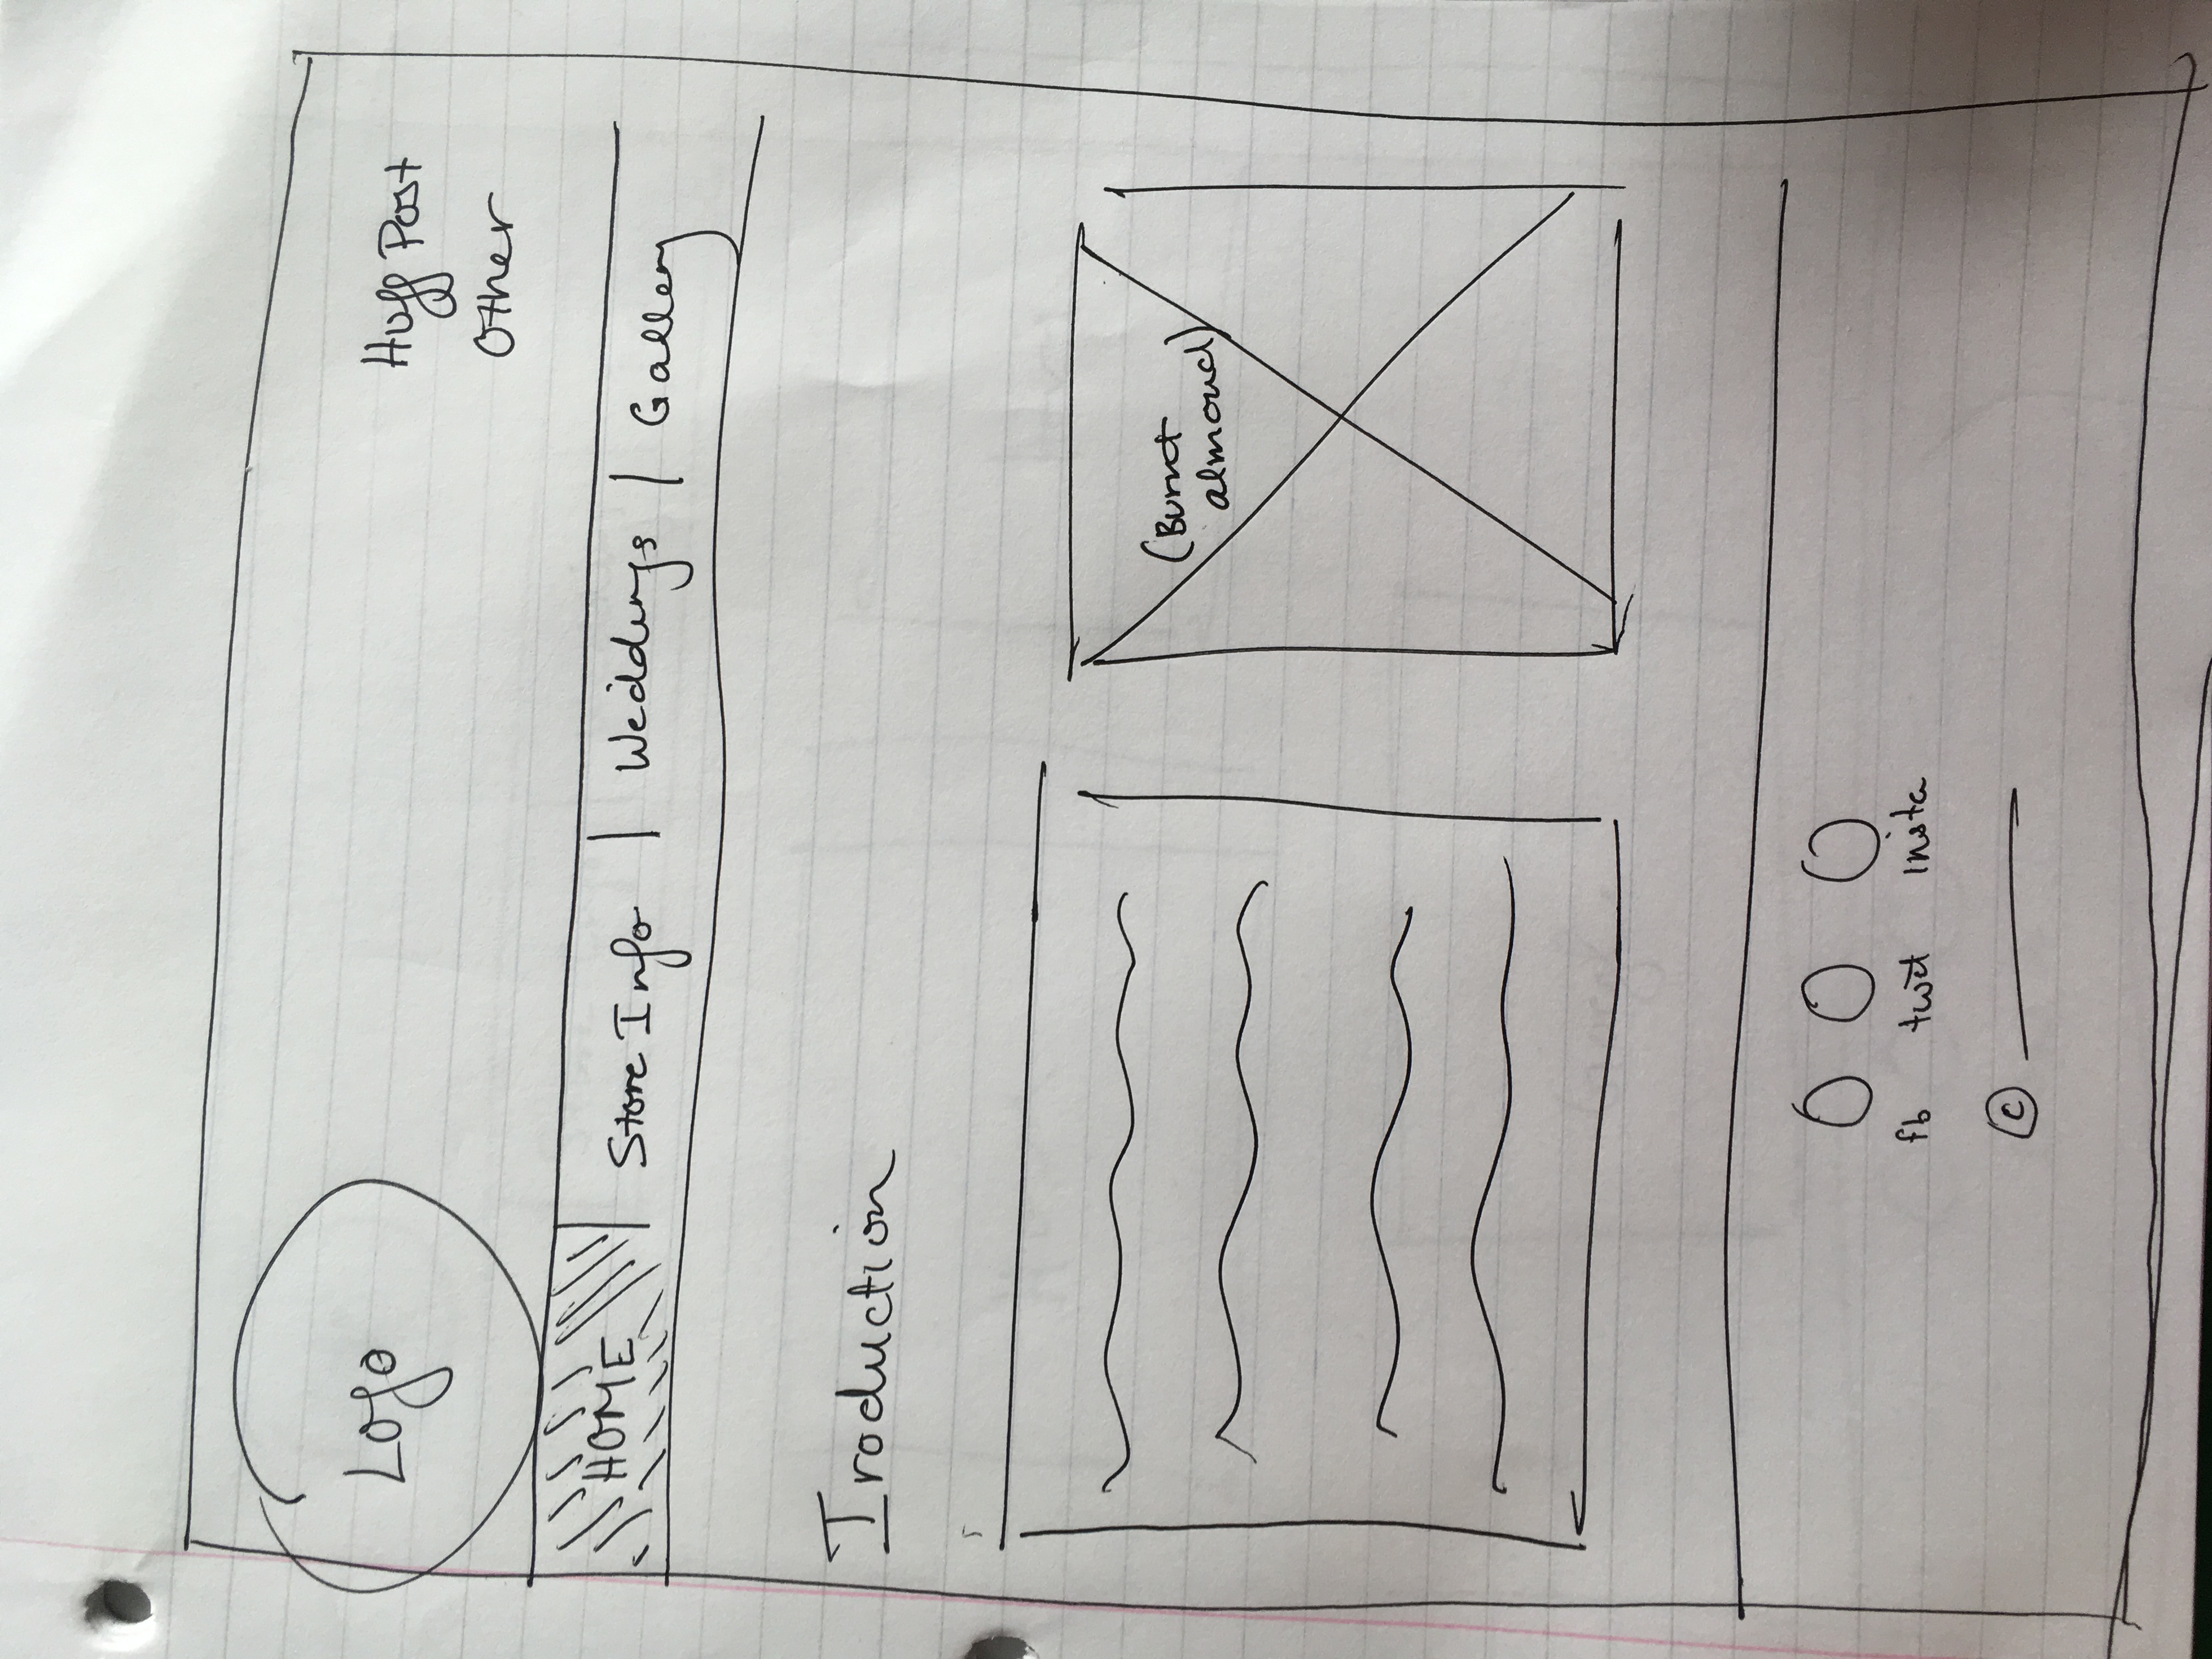 Logo
Huff Post
Other
HOME | Store Info | Weddings | Gallery
Iroduction
(Burnt
almond)
fb twit insta
©